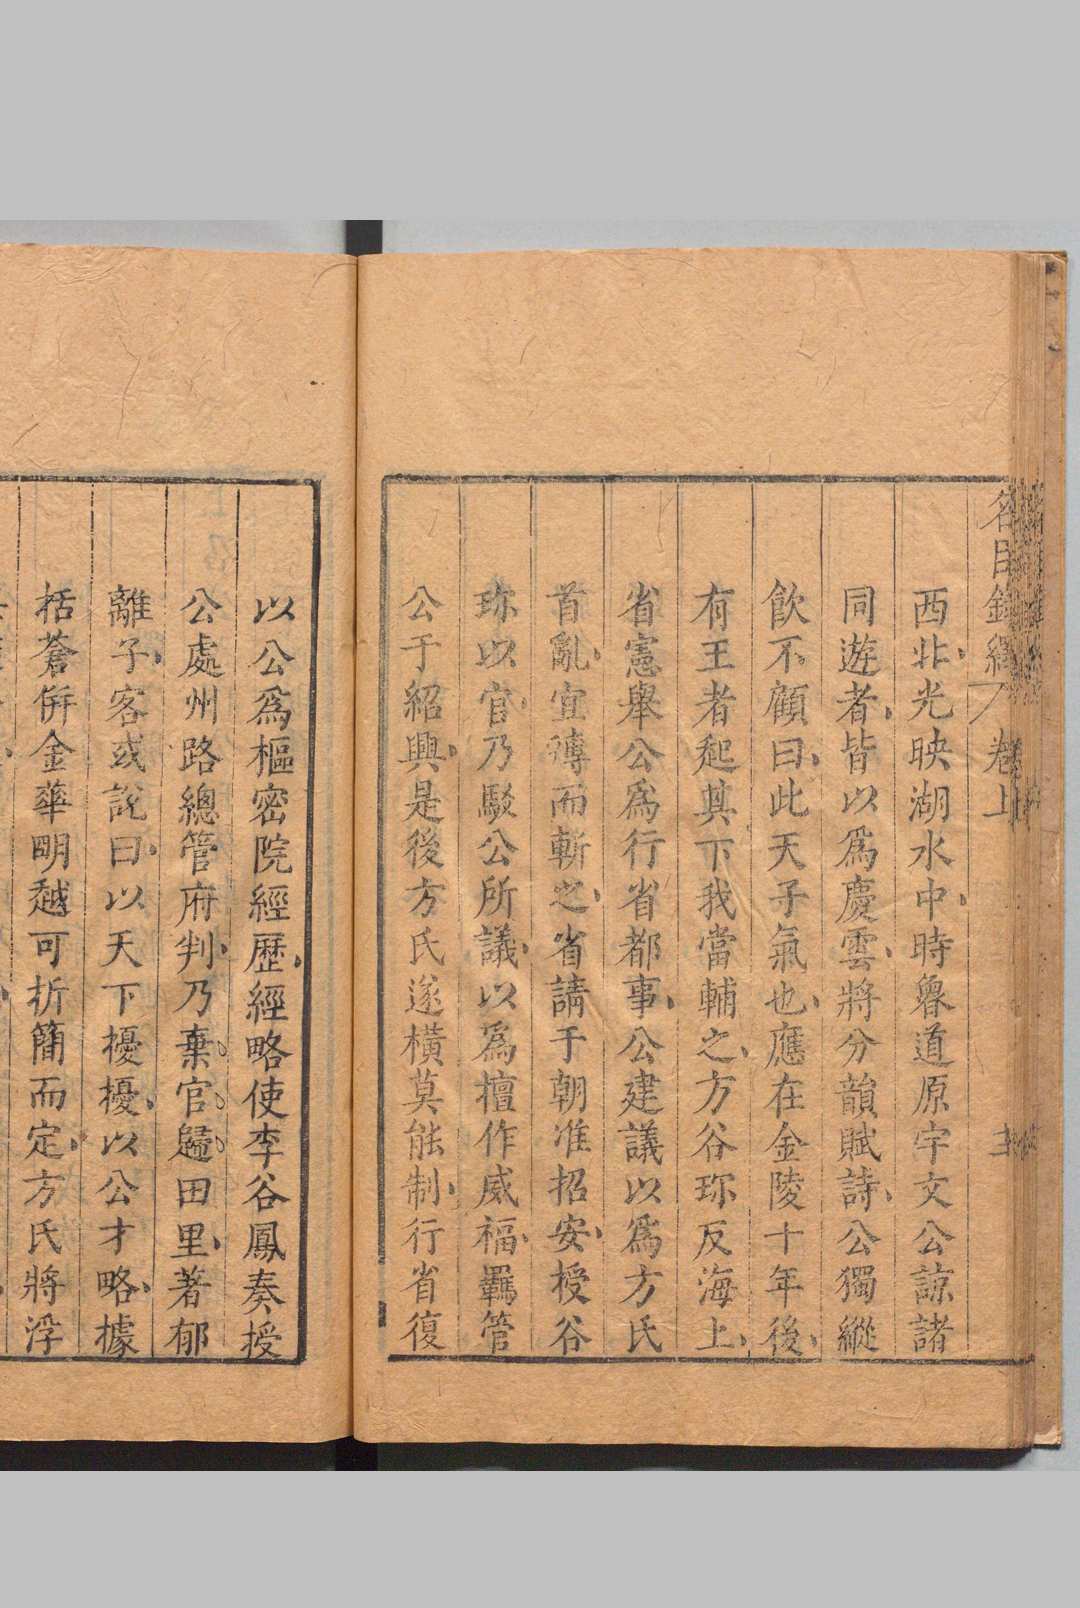 卷上
西北光映湖水中時魯道原宇文公諒諸
同遊者皆以爲慶雲將分韻賦詩公獨縱
飲不顧曰此天子氣也應在金陵十年後
有王者起其下我當輔之方谷珎反海上
省憲舉公爲行省都事公建議以爲方氏
首亂宜慱而斬之省請于朝准招安授谷
珎以官乃駁公所議以爲擅作威福羈管
公于紹興是後方氏遂橫莫能制行省復
以公爲樞密院經歷經略使李谷鳳奏授
公處州路總管府判乃棄官歸田里著郁
離子客或說曰以天下擾擾以公才略據
括蒼併金華明越可折簡而定方氏將浮